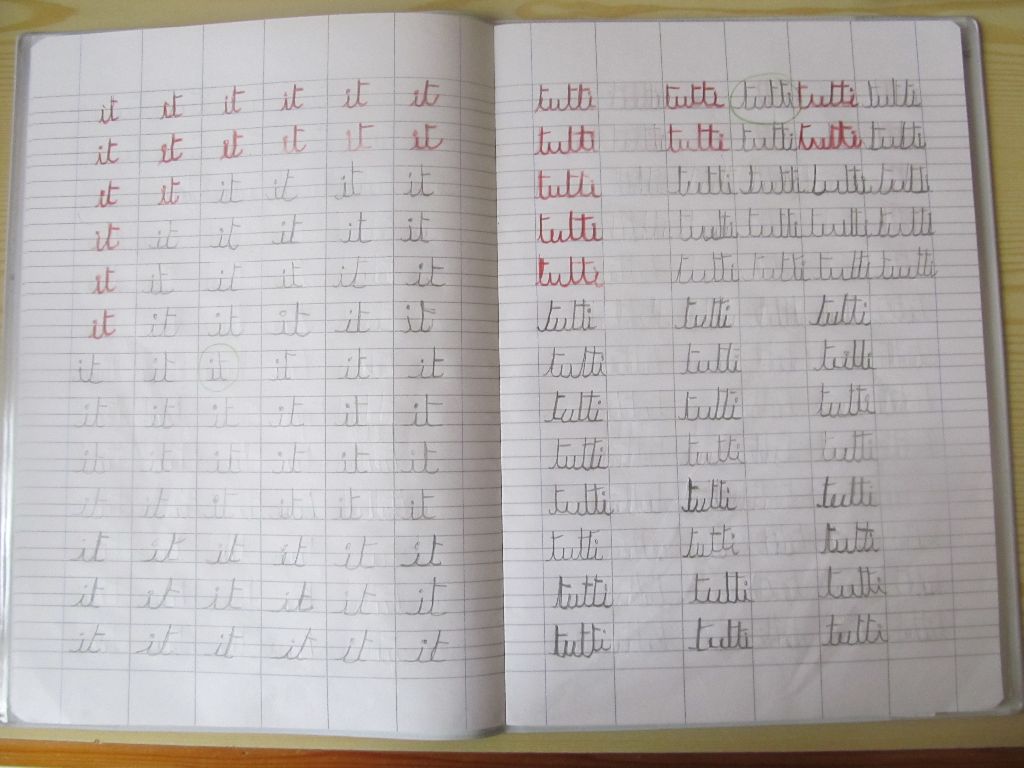 it it it it it it
it it it it it it
it it it it it it
it it it it it it
it it it it it it
it it it it it it
it it it it it it
it it it it it it
it it it it it it
it it it it it it
it it it it it it
it it it it it it
it it it it it it
tutti tutti tutti tutti tutti
tutti tutti tutti tutti tutti
tutti tutti tutti tutti tutti
tutti tutti tutti tutti tutti
tutti tutti tutti tutti tutti
tutti tutti tutti
tutti tutti tutti
tutti tutti tutti
tutti tutti tutti
tutti tutti tutti
tutti tutti tutti
tutti tutti tutti
tutti tutti tutti